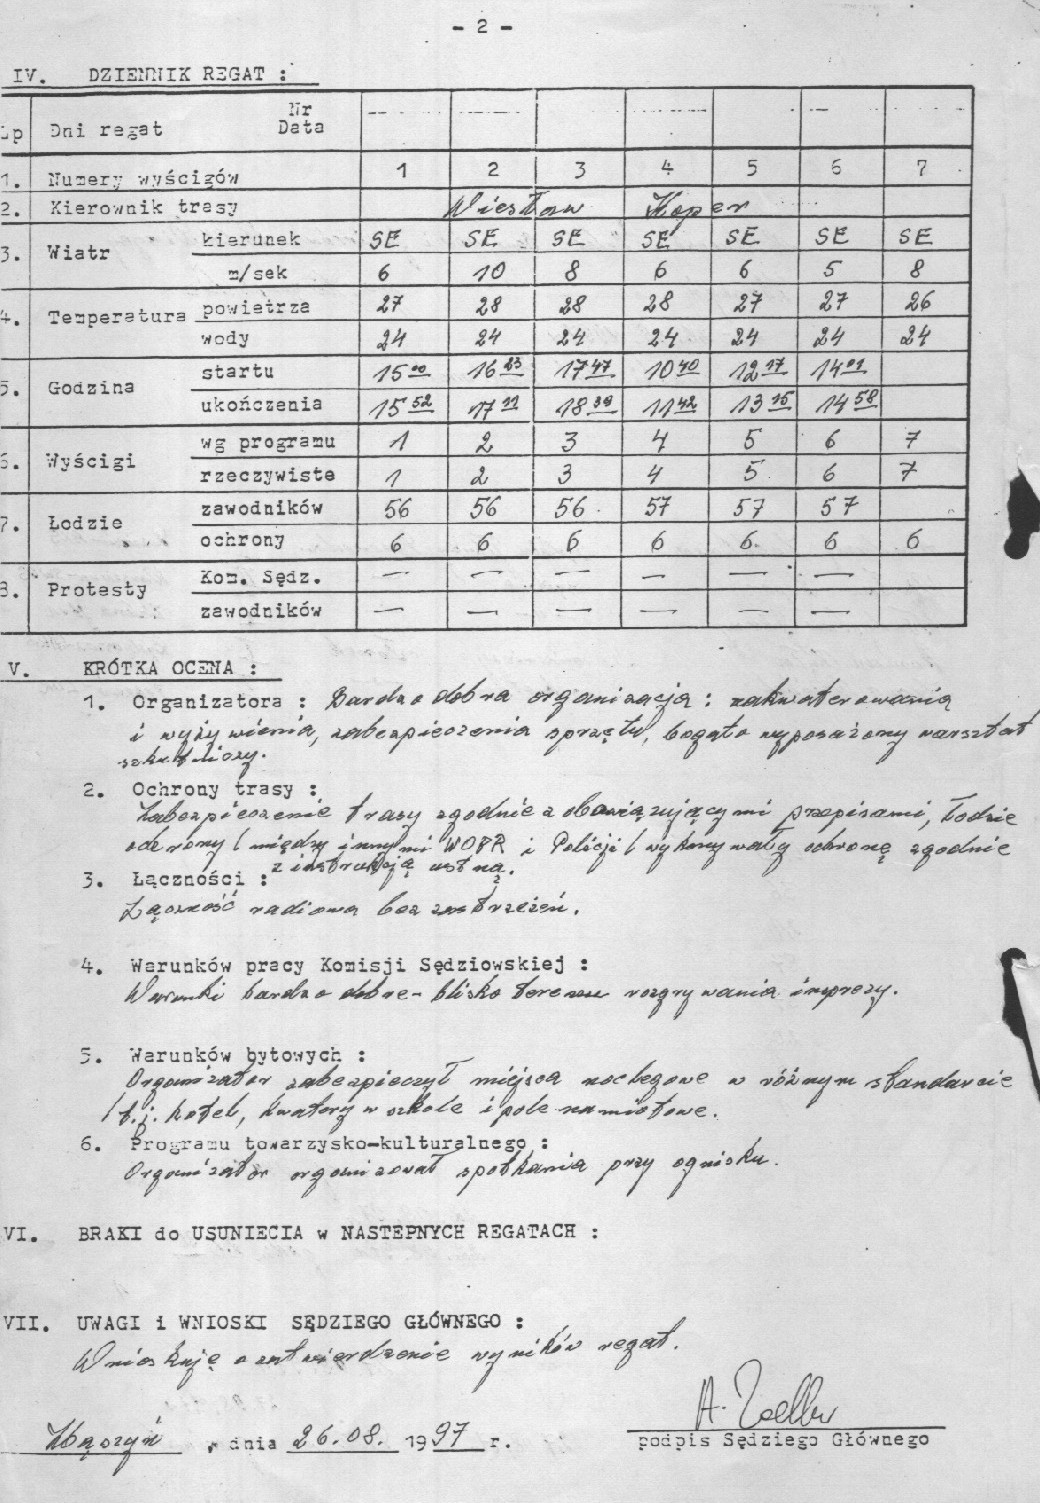 - 2 -
IV. DZIENNIK REGAT :
Lp Dni regat Nr Data
1. Numery wyścigów 1 2 3 4 5 6 7
2. Kierownik trasy Wiesław Koper
3. Wiatr kierunek SE SE SE SE SE SE SE
m/sek 6 10 8 6 6 5 8
4. Temperatura powietrza 27 28 28 28 27 27 26
wody 24 24 24 24 24 24 24
5. Godzina startu 15 00 16 23 17 47 10 40 12 17 14 01
ukończenia 15 52 17 11 18 39 11 42 13 15 14 58
6. Wyścigi wg programu 1 2 3 4 5 6 7
rzeczywiste 1 2 3 4 5 6 7
7. Łodzie zawodników 56 56 56 57 57 57
ochrony 6 6 6 6 6 6 6
8. Protesty Kom. Sędz. — — — — — —
zawodników — — — — — —
V. KRÓTKA OCENA :
1. Organizatora : Bardzo dobra organizacja : zakwaterowania
i wyżywienia, zabezpieczenia sprzętu, bogato wyposażony warsztat
szkutniczy.
2. Ochrony trasy :
Zabezpieczenie trasy zgodnie z obowiązującymi przepisami, łodzie
ochrony ( między innymi WOPR i Policji ) wykonywały ochronę zgodnie
z instrukcją ustną.
3. Łączności :
Łączność radiowa bez zastrzeżeń.
4. Warunków pracy Komisji Sędziowskiej :
Warunki bardzo dobre - blisko terenu rozgrywania imprezy.
5. Warunków bytowych :
Organizator zabezpieczył miejsca noclegowe w różnym standarcie
t.j. hotel, kwatery w szkole i pole namiotowe.
6. Programu towarzysko-kulturalnego :
Organizator organizował spotkania przy ognisku.
VI. BRAKI do USUNIECIA w NASTEPNYCH REGATACH :
VII. UWAGI i WNIOSKI SĘDZIEGO GŁÓWNEGO :
Wnioskuję o zatwierdzenie wyników regat.
Zbąszyń, dnia 26.08. 1997 r.
podpis Sędziego Głównego